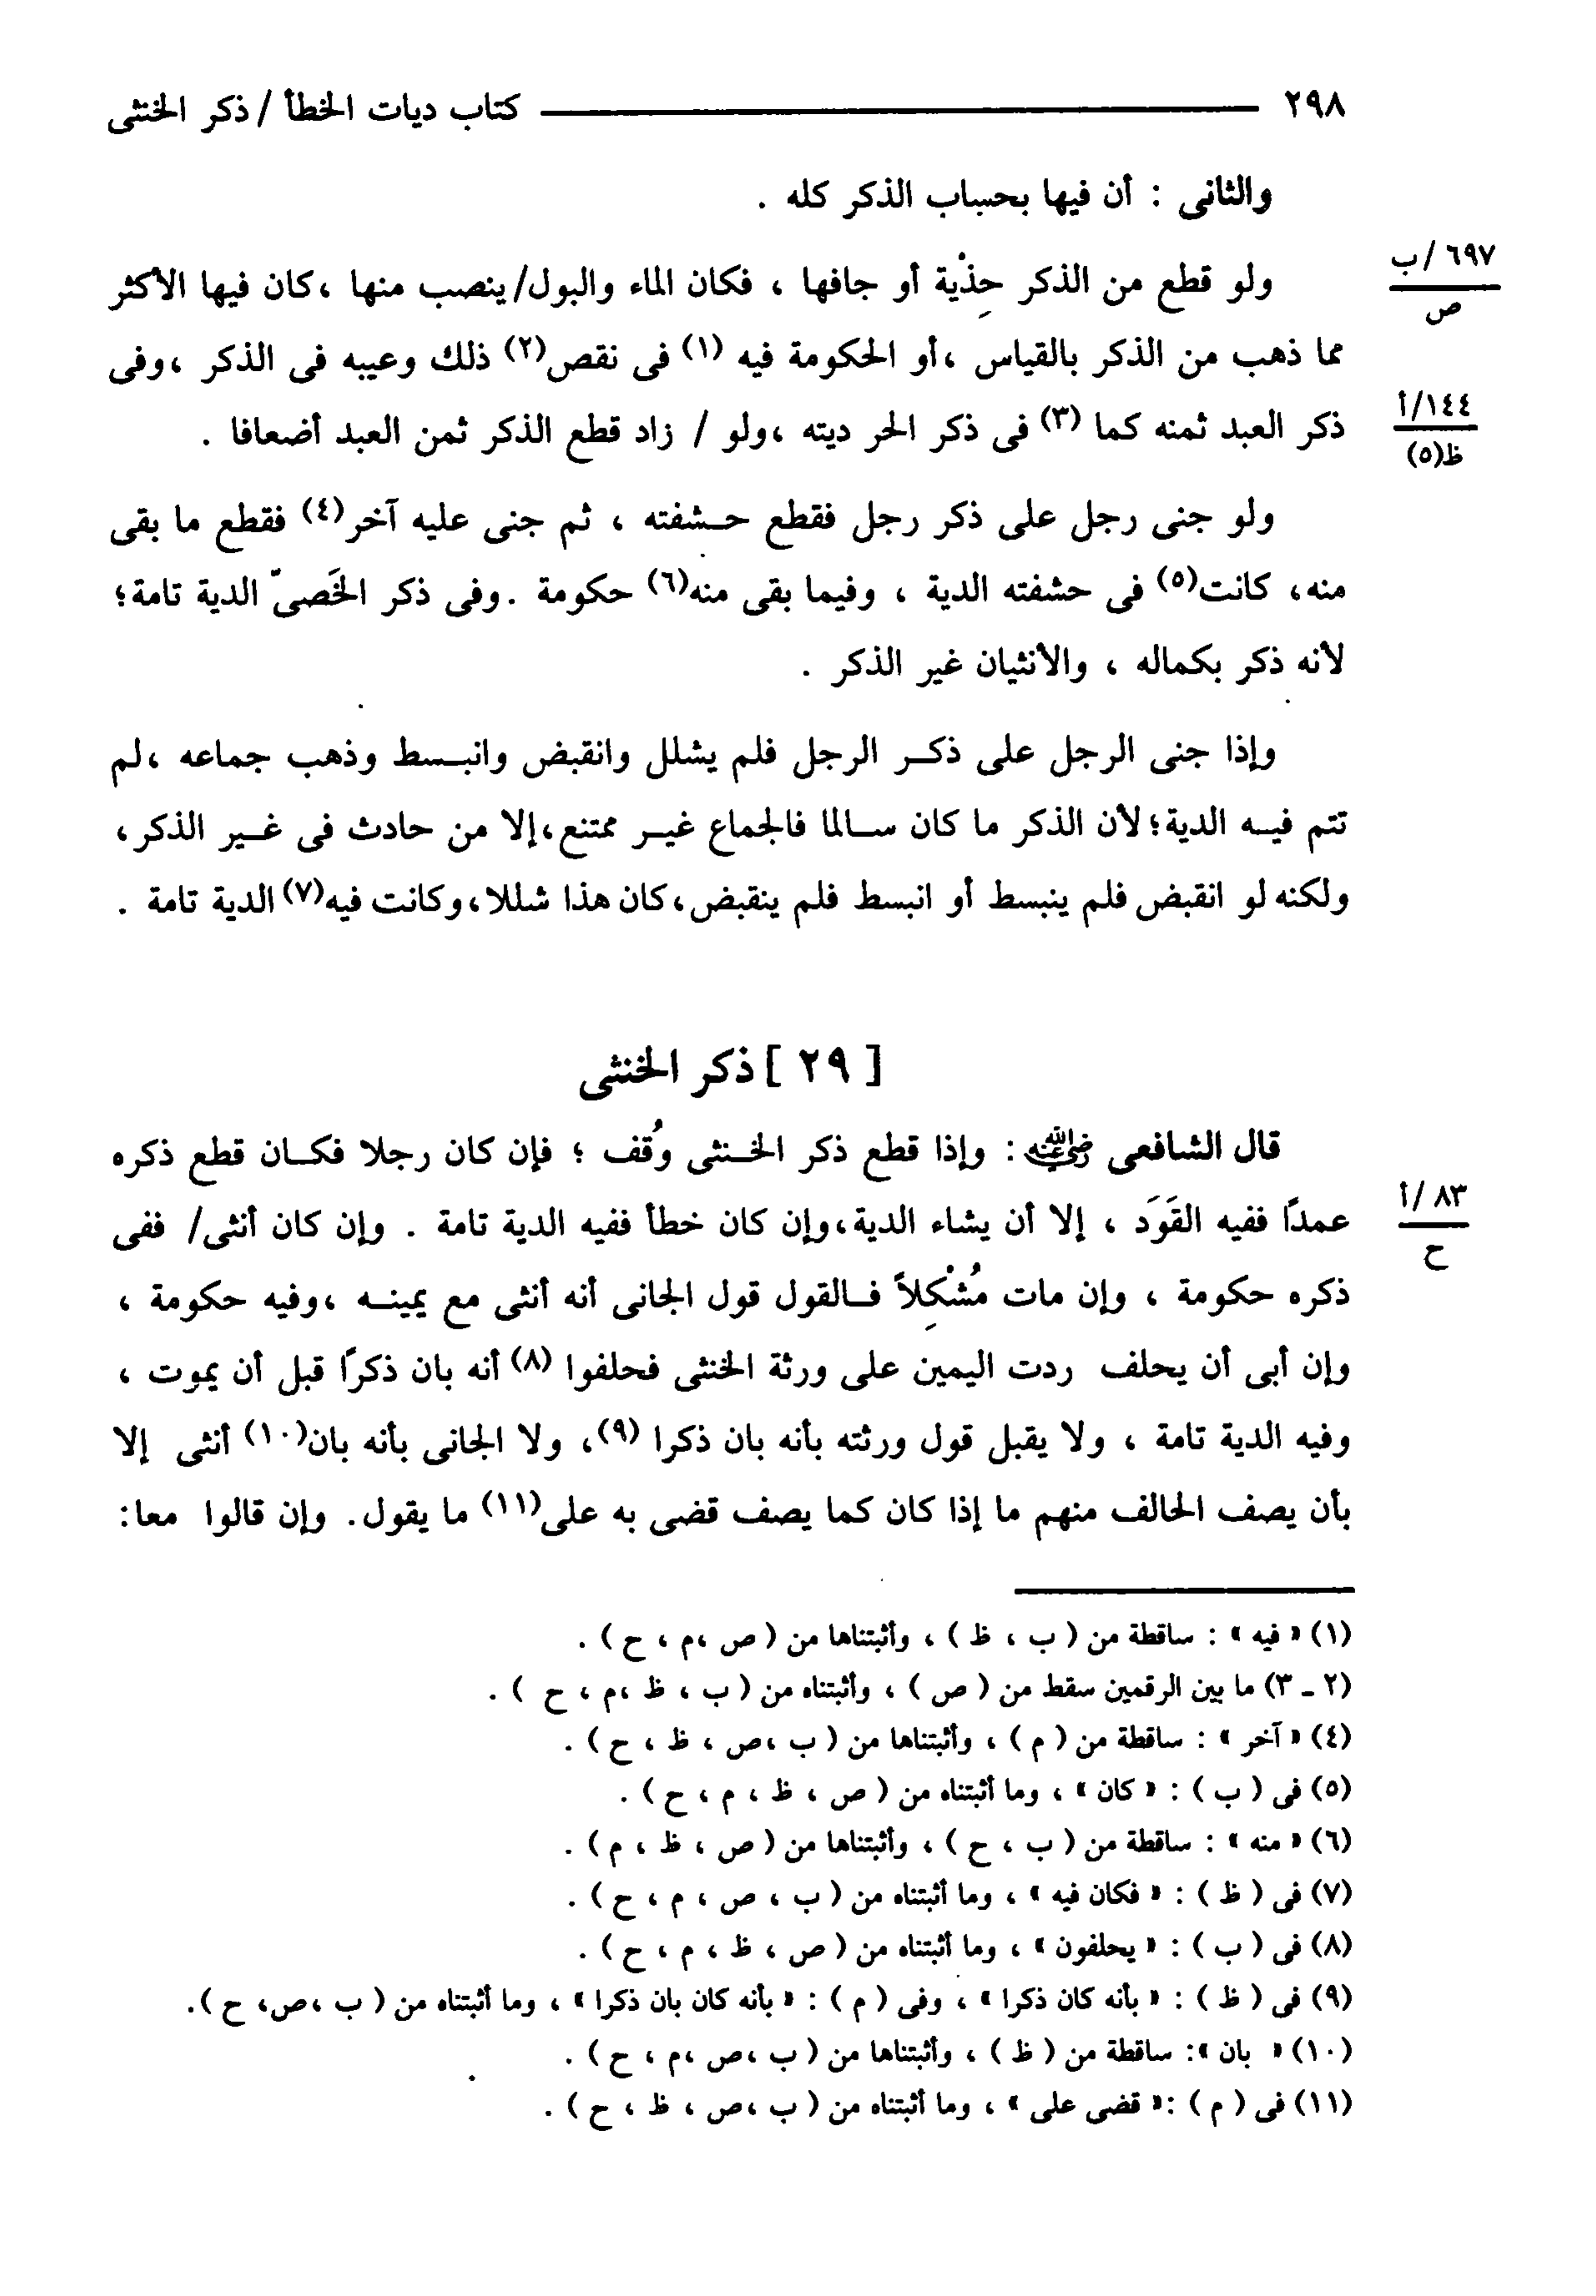 ٢٩٨ ـــــــــــــ كتاب ديات الخطأ / ذكر الخنثى
والثانى : أن فيها بحساب الذكر كله .
٦٩٧ /ب
ص
ولو قطع من الذكر حِذْية أو جافها ، فكان الماء والبول/ينصب منها ،كان فيها الأكثر
مما ذهب من الذكر بالقياس ،أو الحكومة فيه (١) فى نقص(٢) ذلك وعيبه فى الذكر ،وفى
١٤٤/أ
ظ(٥)
ذكر العبد ثمنه كما (٣) فى ذكر الحر ديته ،ولو / زاد قطع الذكر ثمن العبد أضعافا .
ولو جنى رجل على ذكر رجل فقطع حـشفته ، ثم جنى عليه آخر(٤) فقطع ما بقى
منه، كانت(٥) فى حشفته الدية ، وفيما بقى منه(٦) حكومة .وفى ذكر الخَصىّ الدية تامة؛
لأنه ذكر بكماله ، والأنثيان غير الذكر .
وإذا جنى الرجل على ذكـر الرجل فلم يشلل وانقبض وانبـسط وذهب جماعه ،لم
تتم فيـه الدية؛لأن الذكر ما كان سـالما فالجماع غيـر ممتنع،إلا من حادث فى غـير الذكر،
ولكنه لو انقبض فلم ينبسط أو انبسط فلم ينقبض،كان هذا شللا،وكانت فيه(٧) الدية تامة .
[ ٢٩ ] ذكر الخنثى
قال الشافعى رضي الله عنه : وإذا قطع ذكر الخـنثى وُقف ؛ فإن كان رجلا فكـان قطع ذكره
٨٣ /أ
ح
عمدًا ففيه القَوَد ، إلا أن يشاء الدية،وإن كان خطأ ففيه الدية تامة . وإن كان أنثى/ ففى
ذكره حكومة ، وإن مات مُشْكِلاً فـالقول قول الجانى أنه أنثى مع يمينـه ،وفيه حكومة ،
وإن أبى أن يحلف ردت اليمين على ورثة الخنثى فحلفوا (٨) أنه بان ذكرًا قبل أن يموت ،
وفيه الدية تامة ، ولا يقبل قول ورثته بأنه بان ذكرا (٩)، ولا الجانى بأنه بان(١٠) أنثى إلا
بأن يصف الحالف منهم ما إذا كان كما يصف قضى به على(١١) ما يقول. وإن قالوا معا:
(١) « فيه » : ساقطة من ( ب ، ظ ) ، وأثبتناها من ( ص ،م ، ح ) .
(٢ ـ ٣) ما بين الرقمين سقط من ( ص ) ، وأثبتناه من ( ب ، ظ ،م ، ح ) .
(٤) « آخر » : ساقطة من ( م ) ، وأثبتناها من ( ب ،ص ، ظ ، ح ) .
(٥) فى ( ب ) : « كان » ، وما أثبتناه من ( ص ، ظ ، م ، ح ) .
(٦) « منه » : ساقطة من ( ب ، ح ) ، وأثبتناها من ( ص ، ظ ، م ) .
(٧) فى ( ظ ) : « فكان فيه » ، وما أثبتناه من ( ب ، ص ، م ، ح ) .
(٨) فى ( ب ) : « يحلفون » ، وما أثبتناه من ( ص ، ظ ، م ، ح ) .
(٩) فى ( ظ ) : « بأنه كان ذكرا » ، وفى ( م ) : « بأنه كان بان ذكرا » ، وما أثبتناه من ( ب ،ص، ح ).
(١٠) « بان »: ساقطة من ( ظ ) ، وأثبتناها من ( ب ،ص ،م ، ح ) .
(١١) فى ( م ) :« قضى على » ، وما أثبتناه من ( ب ،ص ، ظ ، ح ) .